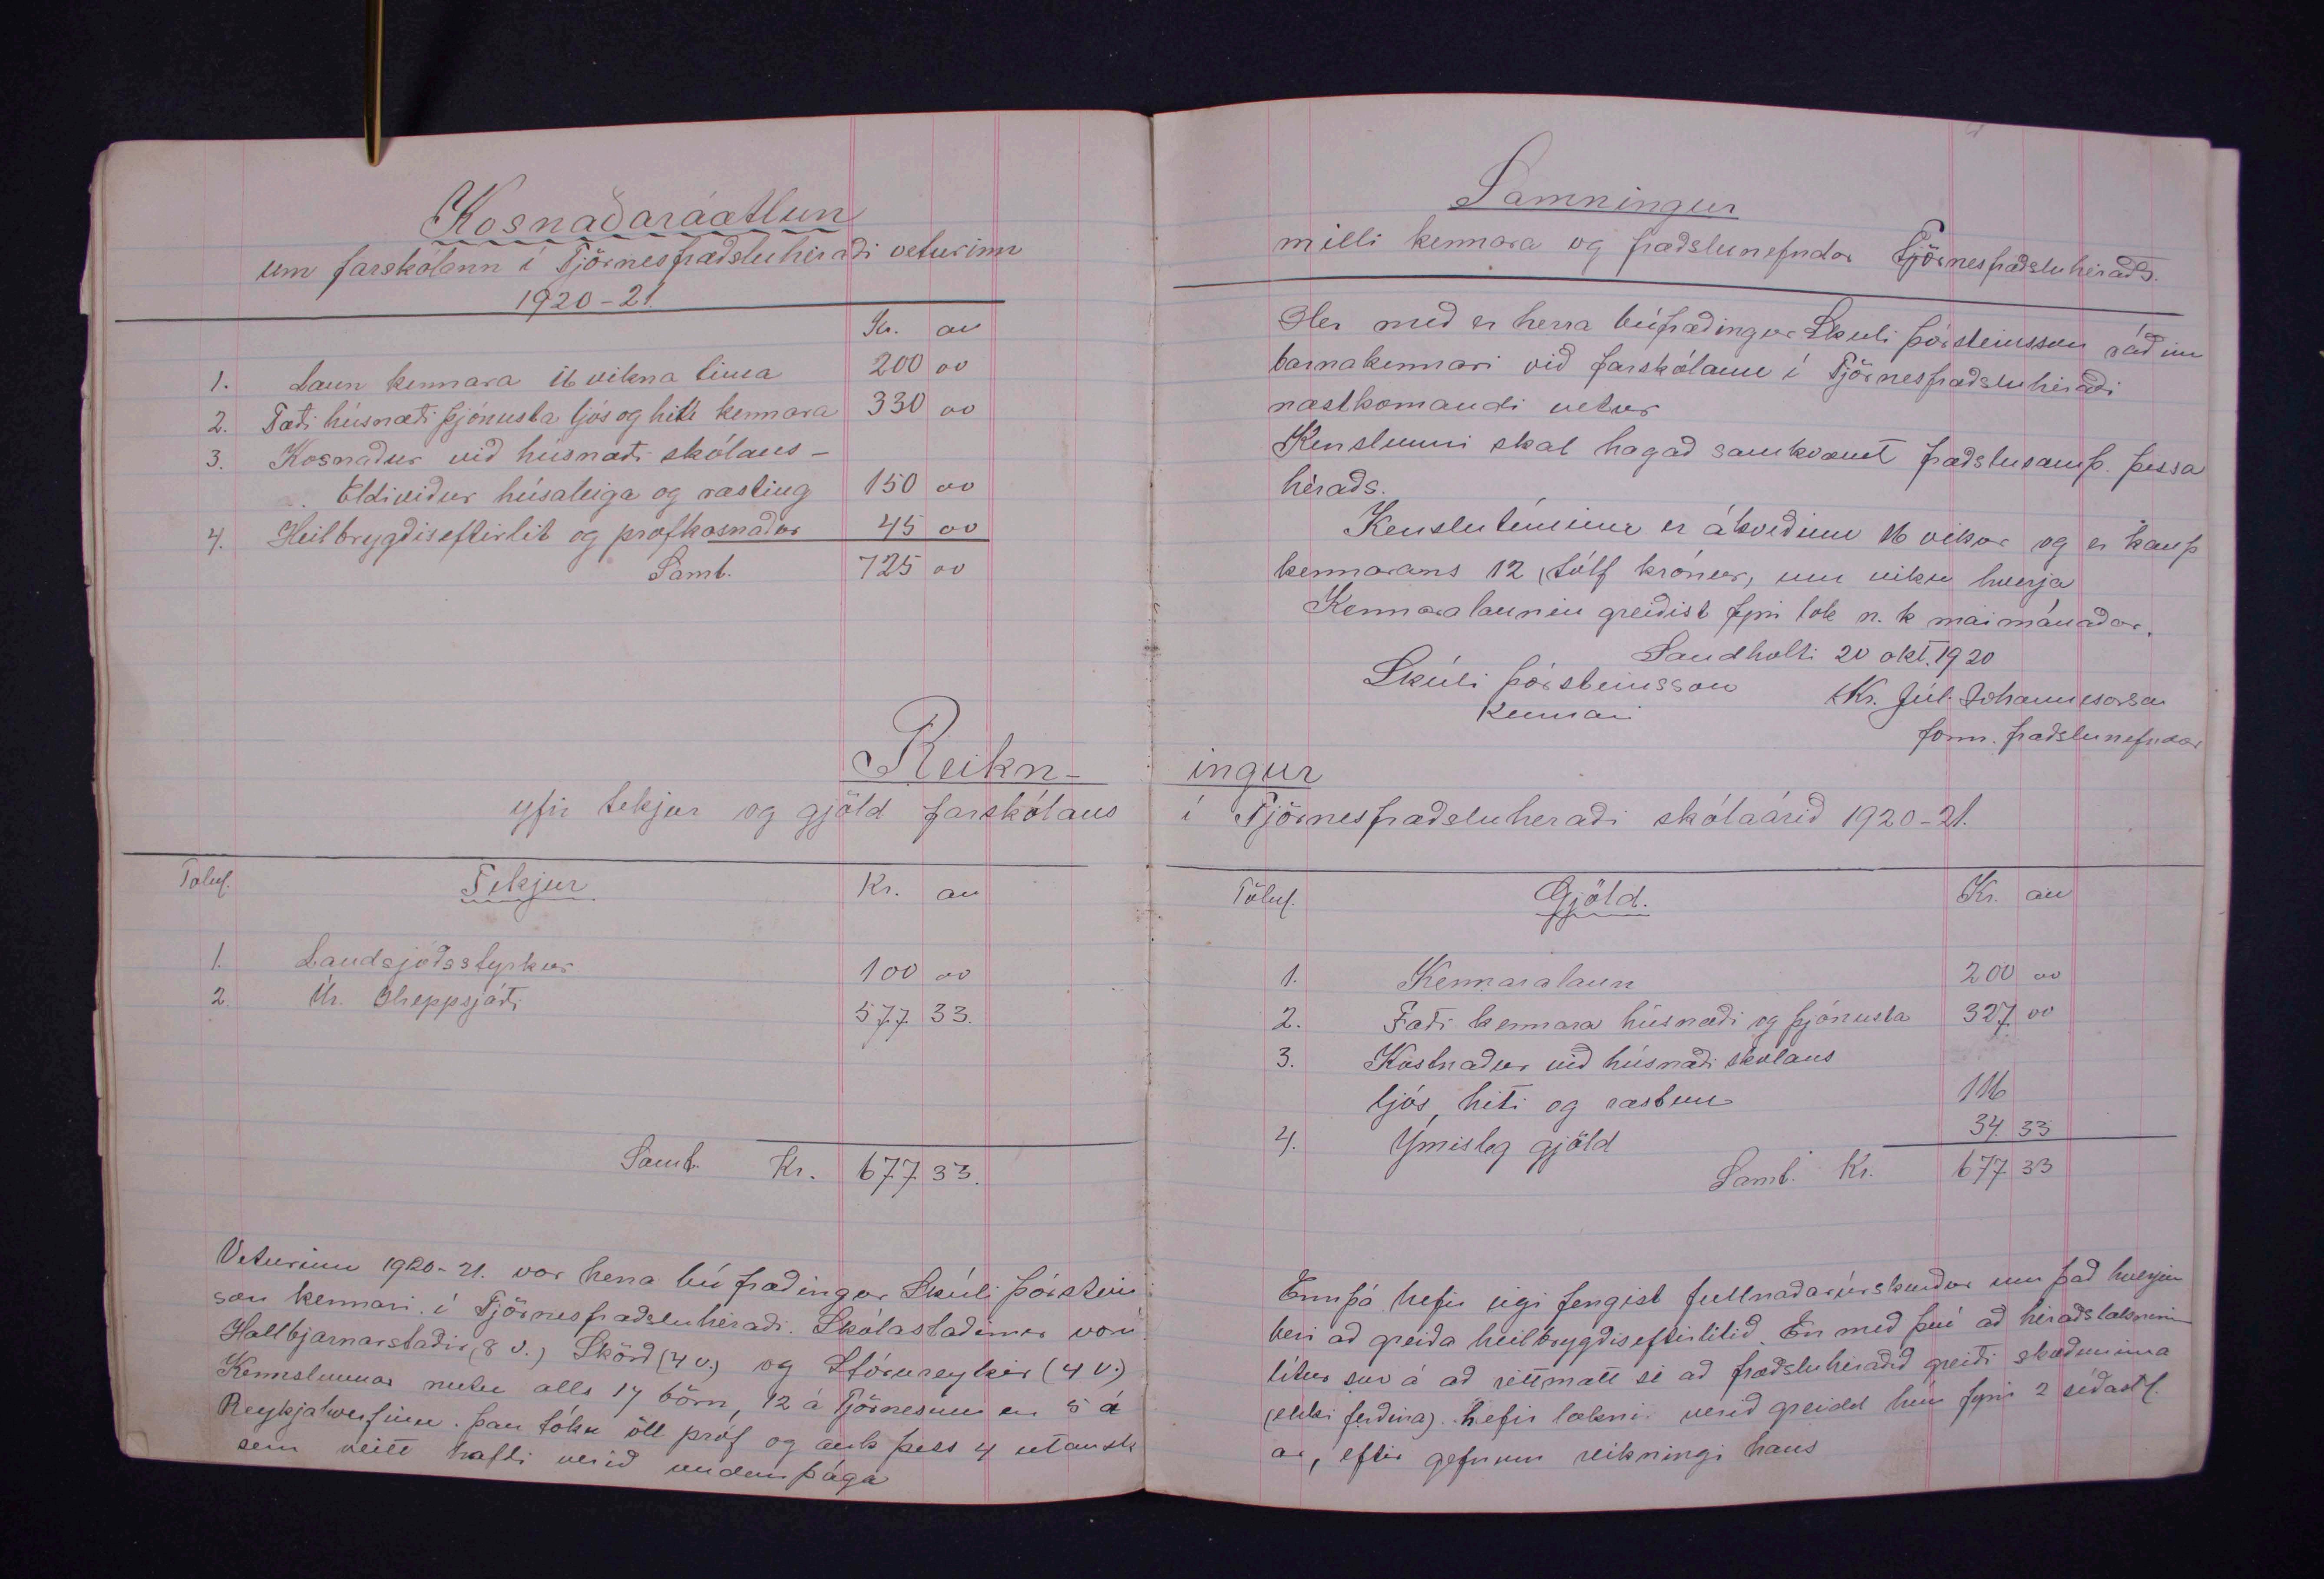 Kosnaðaráætlun
um farskólann í Tjörnesfræðsluhéraði veturinn
1920-21.
Kr. au
1. Laun kennara 16 vikna tíma 200 00
2. Fæði húsnæði þjónusta ljós og hiti kennara 330 00
3. Kosnaður við húsnæði skólans -
Eldiviður húsaleiga og ræsting 150 00
4. Heilbrygðiseftirlit og prófkosnaður 45 00
Samt. 725 00
Samningur
milli kennara og fræðslunefndar Tjörnesfræðsluhéraðs.
Hér með er herra búfræðingur Skúli Þórsteinsson ráðinn
barnakennari við farskólann í Tjörnesfræðsluhéraði
næstkomandi vetur
Kenslunni skal hagað samkvæmt fræðslusamþ. þessa
héraðs.
Kenslutíminn er ákveðinn 16 vikur og er kaup
kennarans 12 (tólf krónur, um viku hverja
Kennaralaunin greiðist fyrir lok n. k maímánaðar.
Sandholti 20 okt. 1920
Skúli Þórsteinsson Kr. Júl. Jóhannesson
kennari
form. fræðslunefndar
Reikn- ingur
yfir tekjur og gjöld farskólans í Tjörnesfræðsluhéraði skólaárið 1920-21.
Töluf. Tekjur Kr. au
1. Landsjóðsstyrkur 100 00
2 Úr Hreppsjóði 577 33.
Samt. Kr. 677 33.
Töluf. Gjöld. Kr. au
1. Kennaralaun 200 00
2. Fæði kennara húsnæði og þjónusta 327 00
3. Kostnaður við húsnæði skólans
ljós, hiti og ræstun 116
4. Ýmisleg gjöld 34 33
Samt. Kr. 677 33
Veturinn 1920-21. var herra búfræðingur Skúli Þórstein
son kennari í Tjörnesfræðsluhéraði. Skólastaðirnir voru
Hallbjarnarstaðir (8 v.) Skörð (4 v.) og Stórureykir (4 v.)
Kennslunnar nutu alls 17 börn, 12 á Tjörnesinu en 5 á
Reykjahverfinu. Þau tóku öll próf og auk þess 4 utansk
sem veitt hafði verið undanþága
Ennþá hefir eigi fengist fullnaðarúrskurður um það hverjum
beri að greiða heilbrygðiseftirlitið. En með því að héraðslæknirinn
lítur svo á að réttmætt sé að fræðsluhéraðið greiði skoðunina
(ekki ferðina). hefir lækni verið greidd hún fyrir 2 síðastl.
ár, eftir gefnum reikningi hans